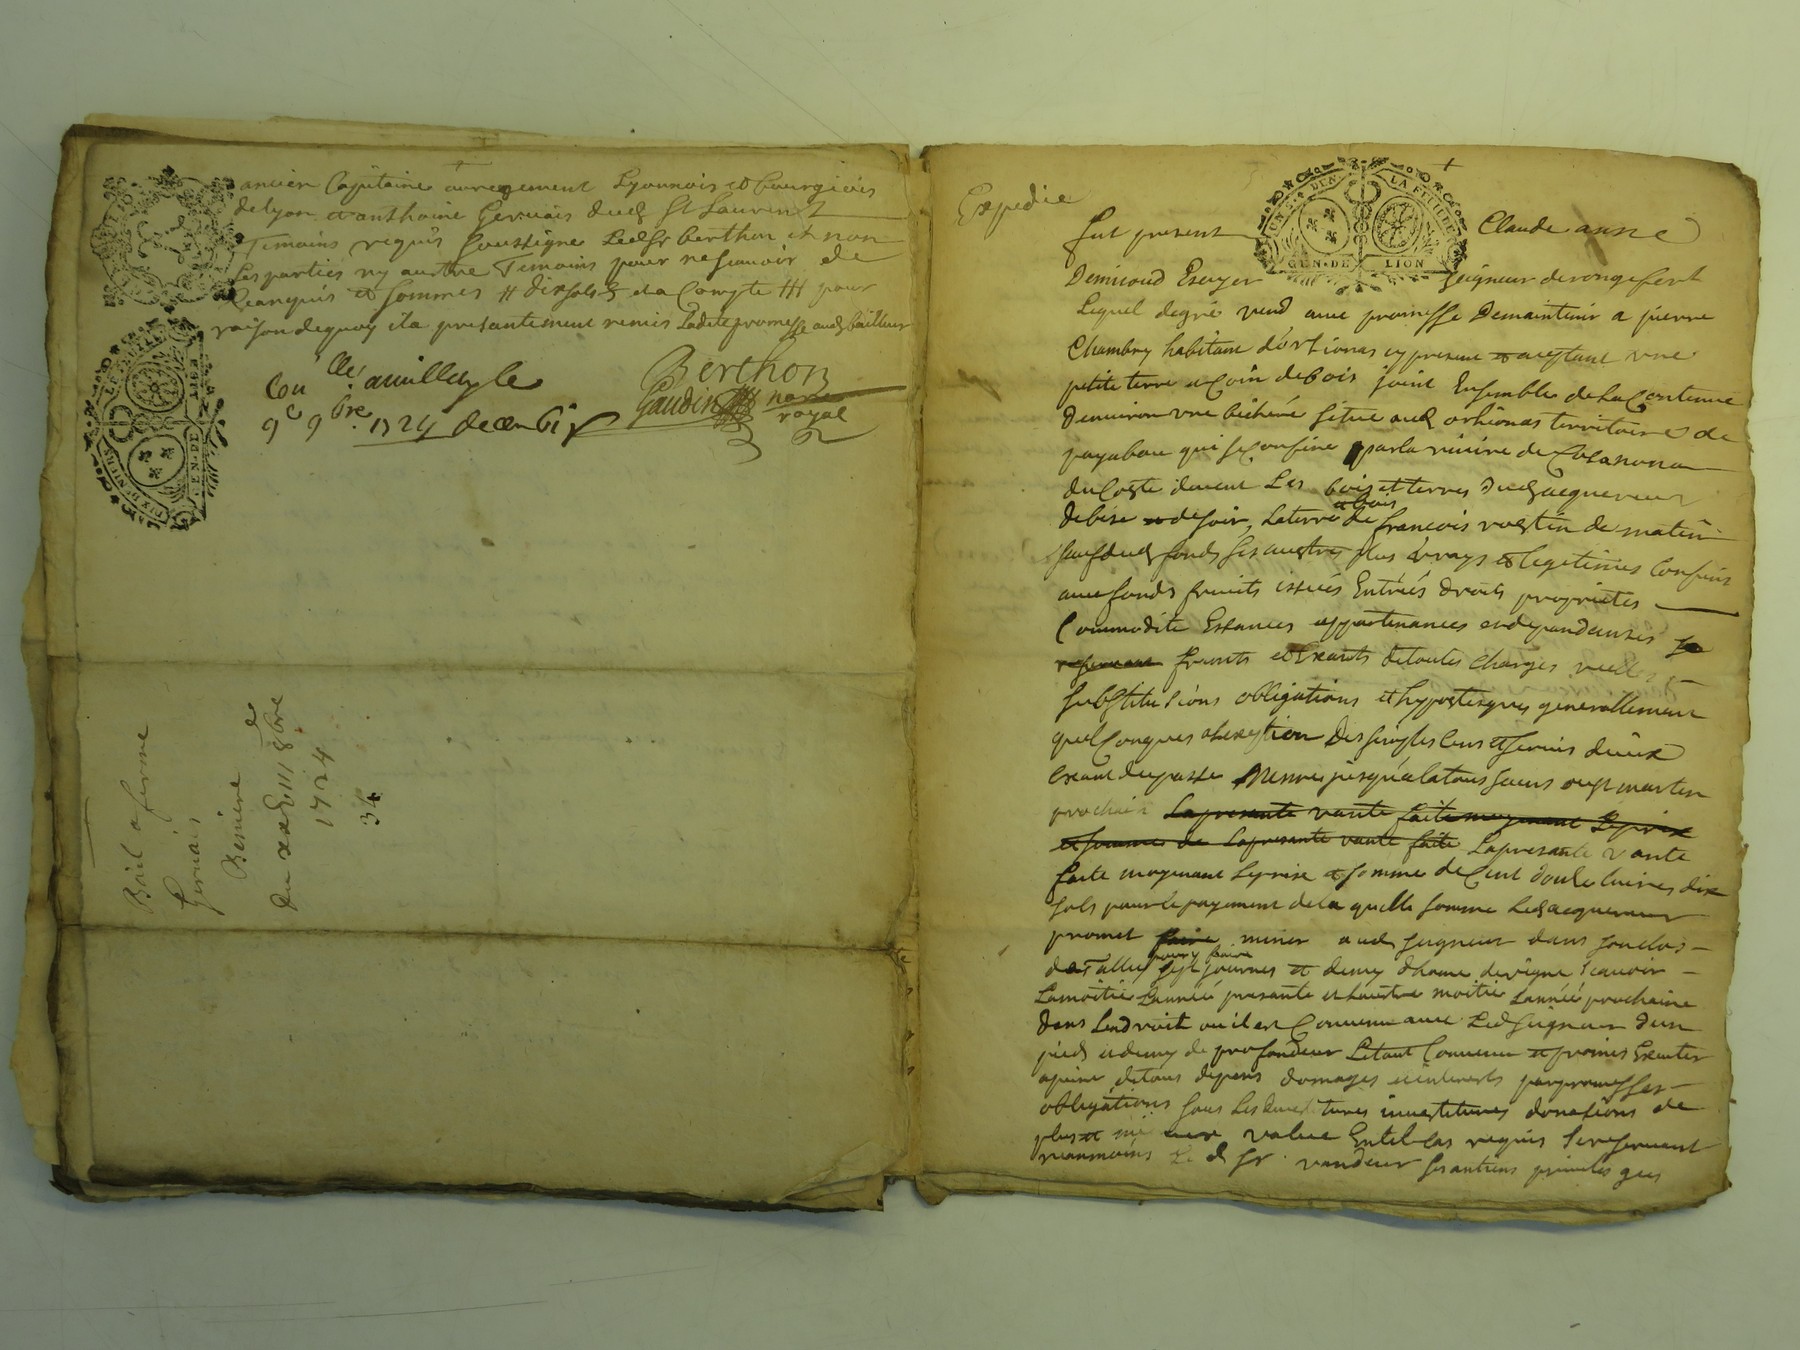 ancien Capitaine au regement Lyonnois et bourgeois
de Lyon et anthoine Gervais dud St Laurent
Temoins requis soussigne Led Sr berthon et non
Les parties ny autre Temoins pour ne scavoir de
ce enquis et sommes # dix sols et a Compte ### pour
raison de quoy il a presantement remis Ladite promesse aud bailleur
Con lle a millery le
9e 9bre 1724 decembr
Berthon
Gaudin nore
royal
Bail a ferme
Gervais
Beniere
Du xxiiii 8bre
1724
34
Expedie
GEN DE LION
fut present Claude anne
Demicoud Escuyer Seigneur de rongefert
Lequel degré vend avec promesse De maintenir a pierre
Chambry habitant d'orlienas cy present et aceptant une
petite terre et coin de bois joint Ensemble de la Contenue
Denviron une bicherée situé aud orlienas territoire de
payabou qui se Confine par la riviere de
du Coste davent Les bois et terres Dud acquereur
de bise et de soir, La terre et bois de francois de matin
sauf dud fonds ses autres plus vrays et legetimes Confins
avec fonds fruits issues Entrées droits proprietes
Commodite Essances appartenances et dependances se
reservant francts et Exants de toutes charges
substitusions obligations et hypotesques generallement
quelConques a Lexeption Des servis
exant du passe Mesme jusqu'a la toussaints ou st martin
prochain La presante vante faite moyenant Le prix
et somme de La presante vante faite La presante vante
faite moyenant Le prix et somme de Cent douse livres dix
sols pour le payement de la quelle somme Led acquereur
promet faire miner aud seigneur dans son clos
de Tallu pour y faire sept journes et demy dhome de vigne scavoir
La moitié Lannée presante et Lautre moitié Lannée prochaine
dans Lendroit ou il est Convenu avec Led seigneur dun
pied et demy de profondeur Letout Convenu et promis Exeuter
a peine de tous depens domages et interests par promesses
obligations sous Les investitures donasions de
plus et mieux value En tel Cas requis se reservant
neanmoins Le d Sr vandeur ses antiens